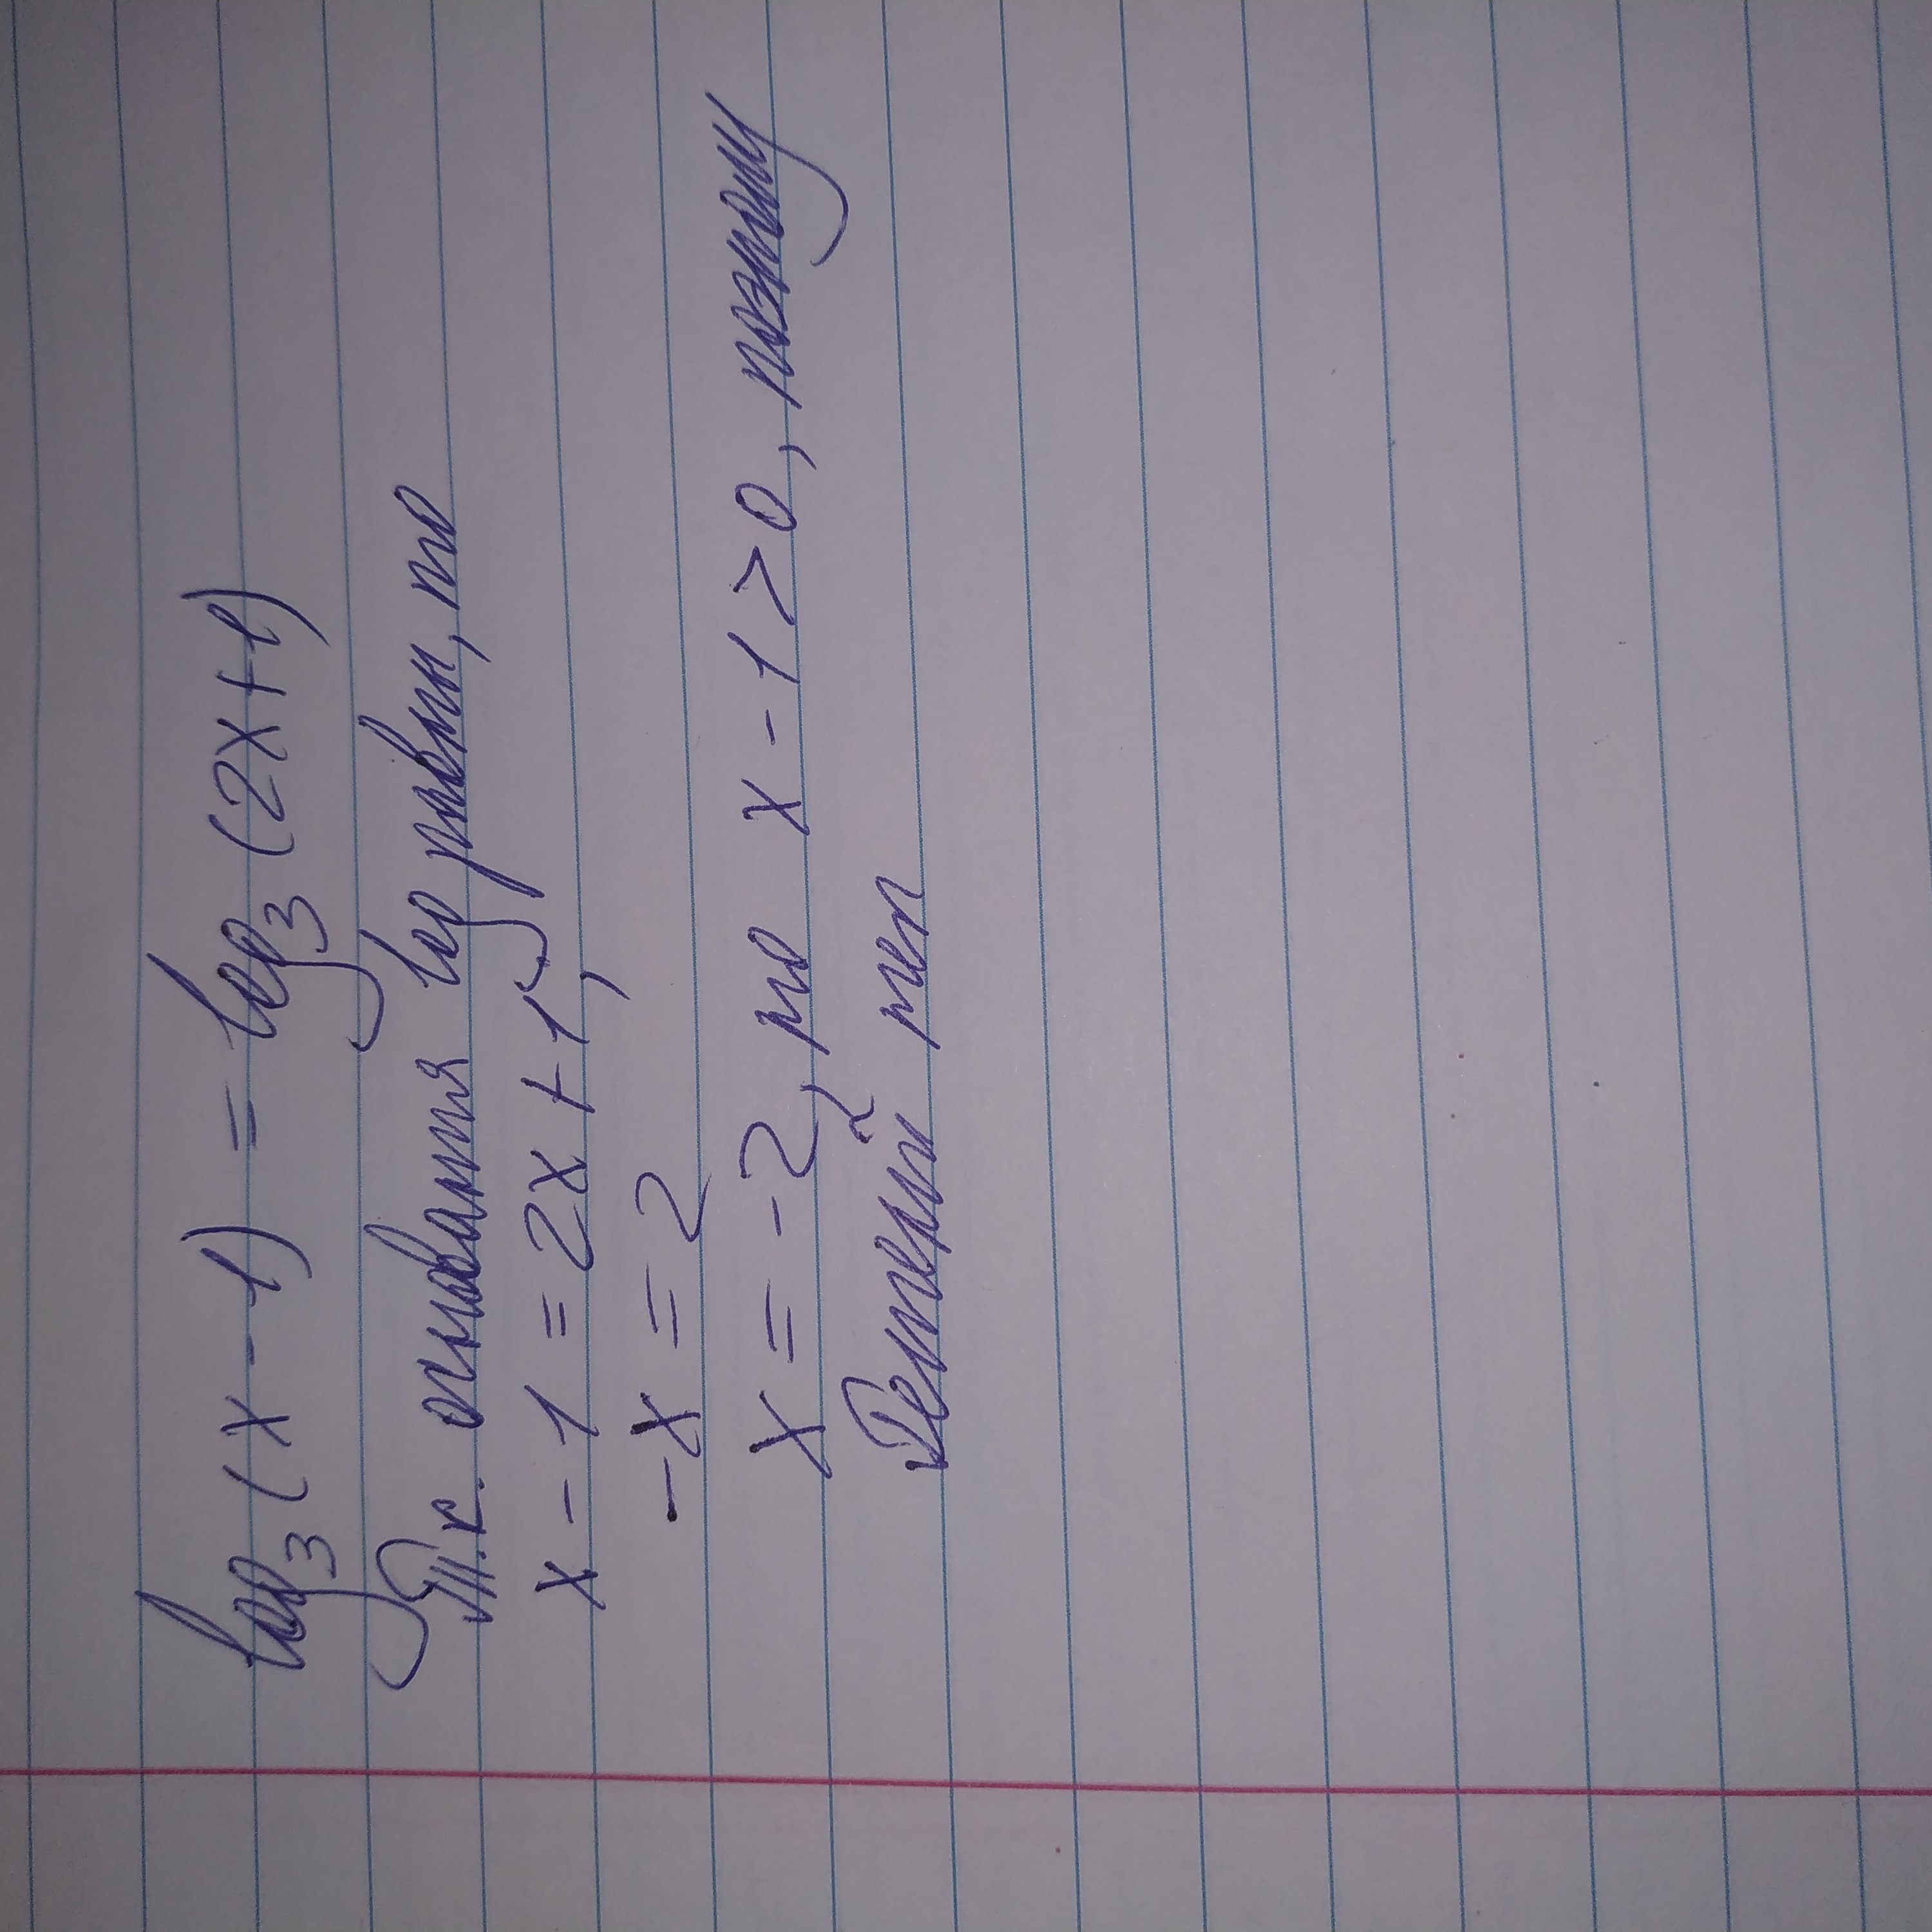 log₃(x-1) = log₃(2x+1)
Т.к. основания log равны, то
x-1=2x+1,
-x=2
x=-2, но x-1>0, поэтому
Решений нет